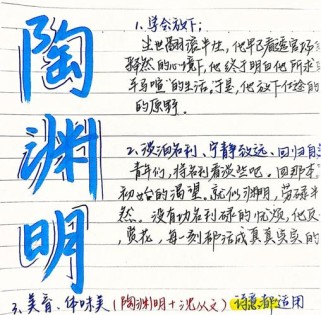 陶渊明
1、学会放下：
尘世翻滚半生，他早已看透官场
释然的心境下，他终于明白他所求
车马喧"的生活。于是，他放下仕途的
的原野。
2、淡泊名利、宁静致远、回归自
青年们，将名利看淡些吧，回那
初始的渴望。就似渊明，劳碌半
然。没有功名利禄的忧烦，他
，赏花，每一刻都活成真真实实的
3、美育、体味美（陶渊明＋沈从文）诗意都适用